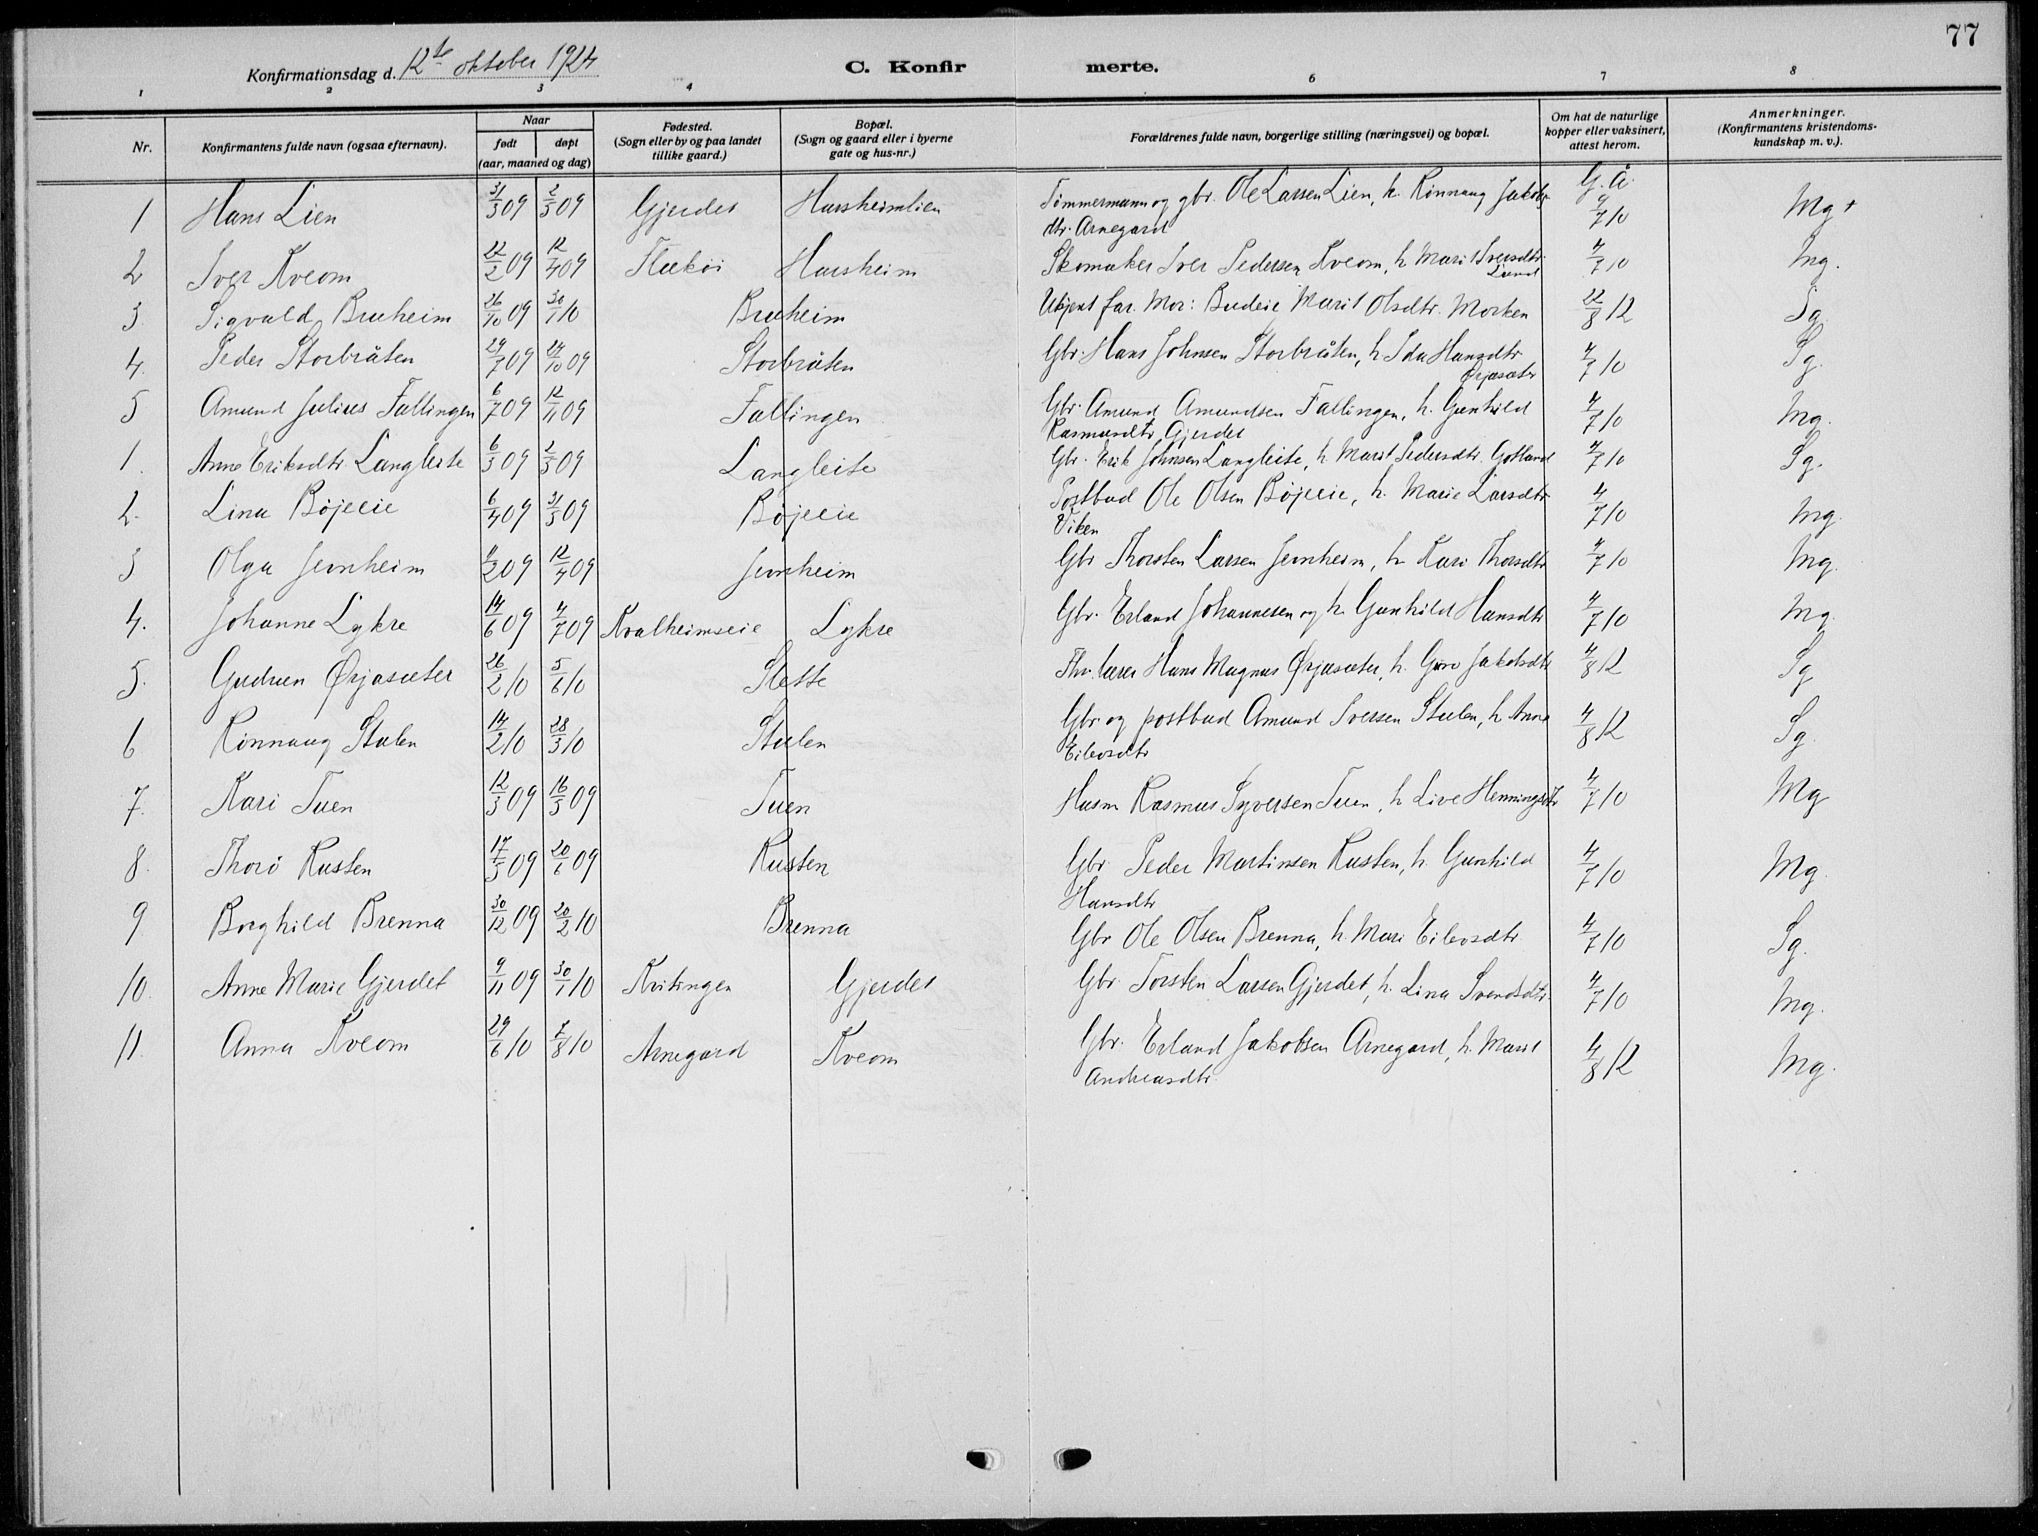 77
Konfirmationsdag d. 12te oktober 1924
C. Konfirmerte.
1 2 3 4 6 7 8
Nr. Konfirmantens fulde navn (ogsaa efternavn). Naar født døpt (aar, maaned og dag) Fødested. (Sogn eller by og paa landet tillike gaard.) Bopæl. (Sogn og gaard eller i byerne gate og hus-nr.) Forældrenes fulde navn, borgerlige stilling (næringsvei) og bopæl. Om hat de naturlige kopper eller vaksinert, attest herom. Anmerkninger. (Konfirmantens kristendoms-kundskap m. v.).
G. Å.
1 Hans Lien 31/3 09 2/5 09 Gjerdet Harsheimlien Tømmermann og gbr. Ole Larsen Lien, h. Rønnaug Jakobs-
dtr. Arnegard 4/7 10 Mg +
2 Iver Kveom 22/2 09 12/4 09 Flækøi Harsheim Skomaker Iver Pedersen Kveom, h. Marit Iversdtr. 4/7 10 Mg.
Lund
3 Sigvald Bruheim 26/10 09 30/1 10 Bruheim Ukjent far. Mor: Budeie Marit Olsdtr. Morken 22/8 12 Sg
4. Peder Storbråten 29/7 09 24/10 09 Storbråten Gbr. Hans Johnsen Storbråten, h. Ida Hansdtr 4/7 10 Sg.
Ørjasæter
5 Amund Julius Fallingen 6/7 09 12/11 09 Fallingen Gbr. Amund Amundsen Fallingen, h. Gunhild 4/7 10 Mg.
Rasmusdtr. Gjerdet
1. Anne Eriksdtr. Langleite 6/3 09 2/5 09 Langleite Gbr. Erik Johnsen Langleite, h. Marit Pedersdtr. Gotland 4/7 10 Sg.
2. Lina Bøjeeie 6/4 09 31/5 09 Bøjeeie Postbud Ole Olsen Bøjeeie, h. Marie Larsdtr. 4/7 10 Mg.
Viken
3 Olga Jevnheim 4/2 09 12/4 09 Jevnheim Gbr Thorsten Larsen Jevnheim, h. Kari Thorsdtr 4/7 10 Mg.
4. Johanne Lykre 14/6 09 4/7 09 Kvalheimseie Lykre Gbr. Erland Johannesen og h. Gunhild Hansdtr 4/7 10 Mg.
5. Gudrun Ørjasæter 26/2 10 5/6 10 Slette Thv. lærer Hans Magnus Ørjasæter, h. Guro Jakobsdtr 4/8 12 Sg
6 Rønnaug Stulen 14/2 10 28/3 10 Stulen Gbr. og postbud Amund Iversen Stulen, h. Anne 4/8 12 Sg.
Eilevsdtr
7. Kari Tuen 12/3 09 16/5 09 Tuen Husm Rasmus Syversen Tuen, h. Live Henningsdtr 4/7 10 Mg
8. Thorø Rusten 17/5 09 20/6 09 Rusten Gbr. Peder Martinsen Rusten, h. Gunhild 4/7 10 Mg.
Hansdtr
9 Borghild Brenna 30/12 09 20/2 10 Brenna Gbr. Ole Olsen Brenna, h. Mari Eilevsdtr 4/7 10 Sg.
10. Anne Marie Gjerdet 9/11 09 30/1 10 Kvitingen Gjerdet Gbr. Torsten Larsen Gjerdet, h. Lina Svendsdtr. 4/7 10 Mg.
11. Anna Kveom 29/6 10 7/8 10 Arnegard Kveom Gbr. Erland Jakobsen Arnegard, h. Marit 4/8 12 Mg.
Andreasdtr